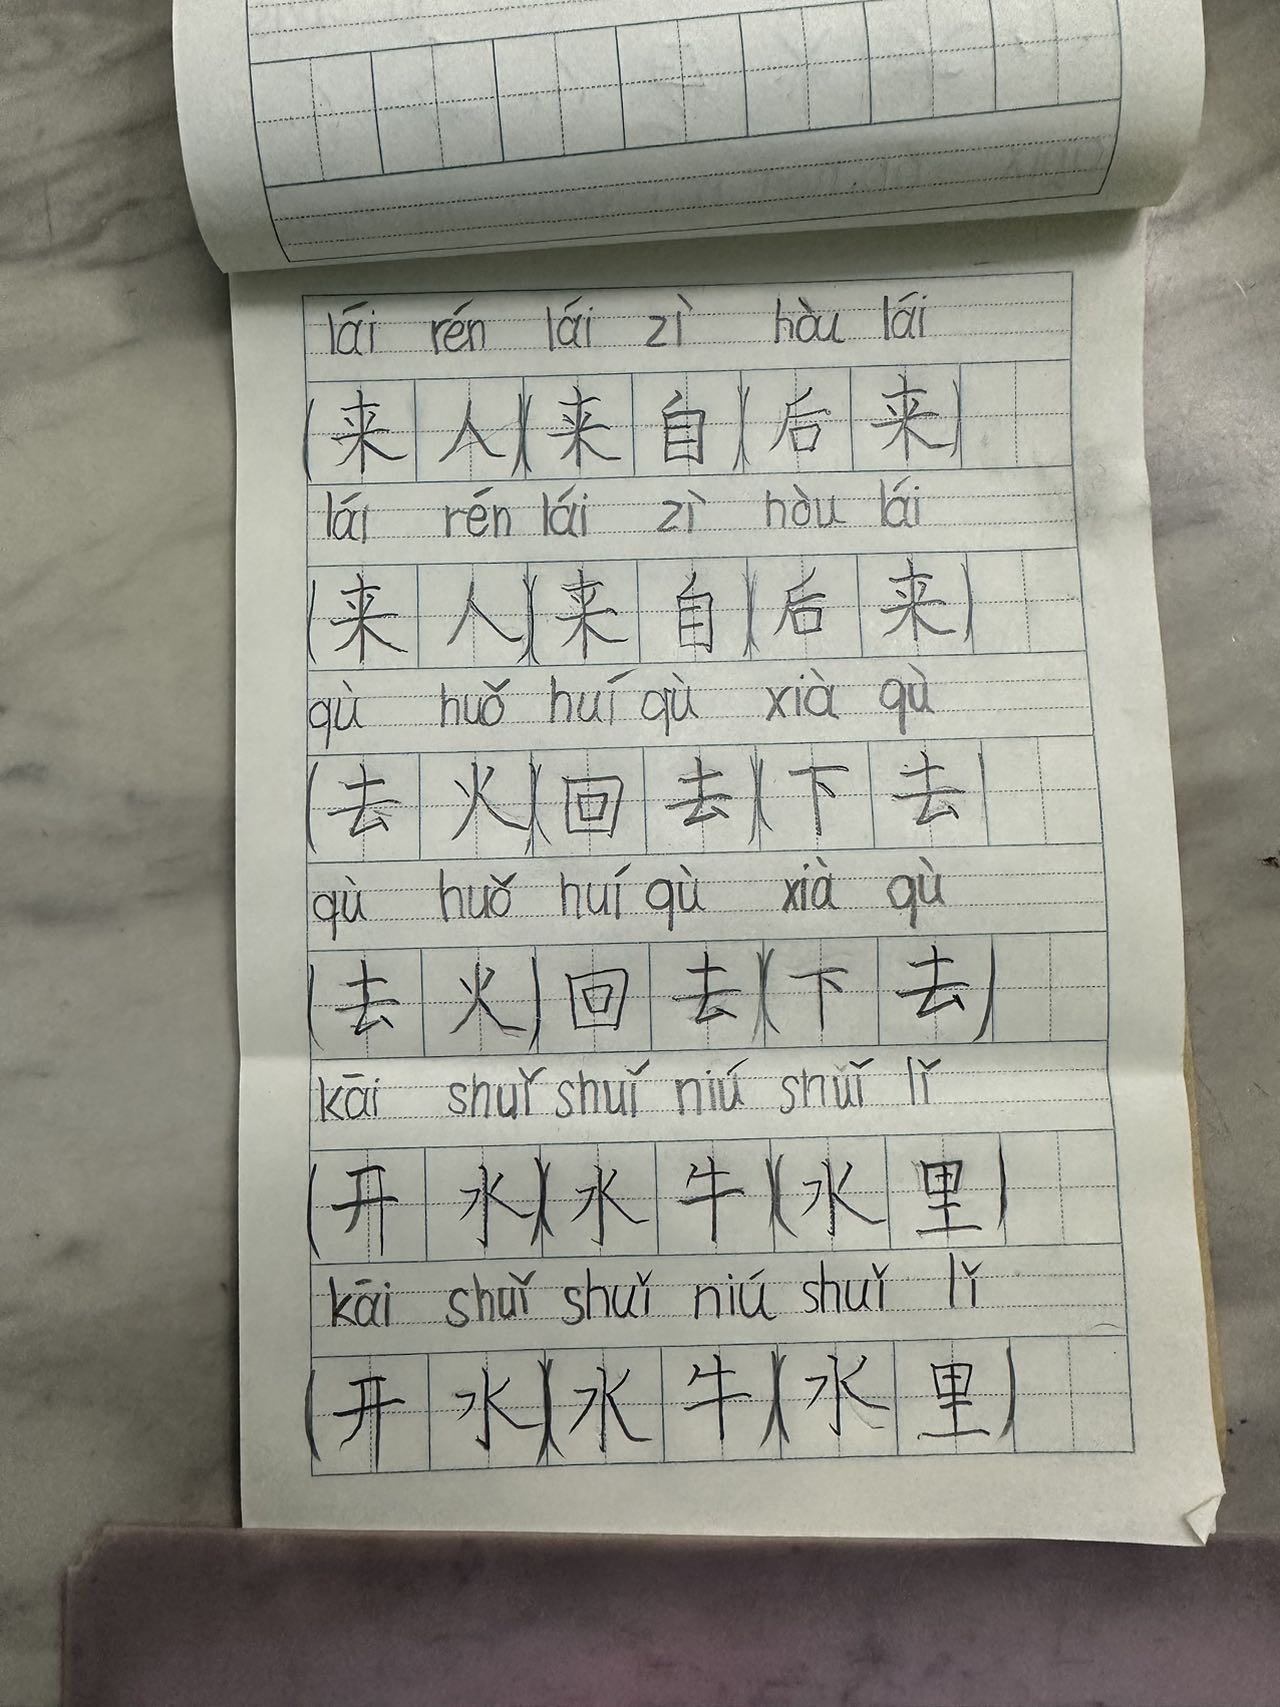 lái rén lái zì hòu lái
(来人)(来自)(后来)
lái rén lái zì hòu lái
(来人)(来自)(后来)
qù huǒ huí qù xià qù
(去火)(回去)(下去)
qù huǒ huí qù xià qù
(去火)回去)(下去)
kāi shuǐ shuǐ niú shuǐ lǐ
(开水)(水牛)(水里)
kāi shuǐ shuǐ niú shuǐ lǐ
(开水)(水牛)(水里)